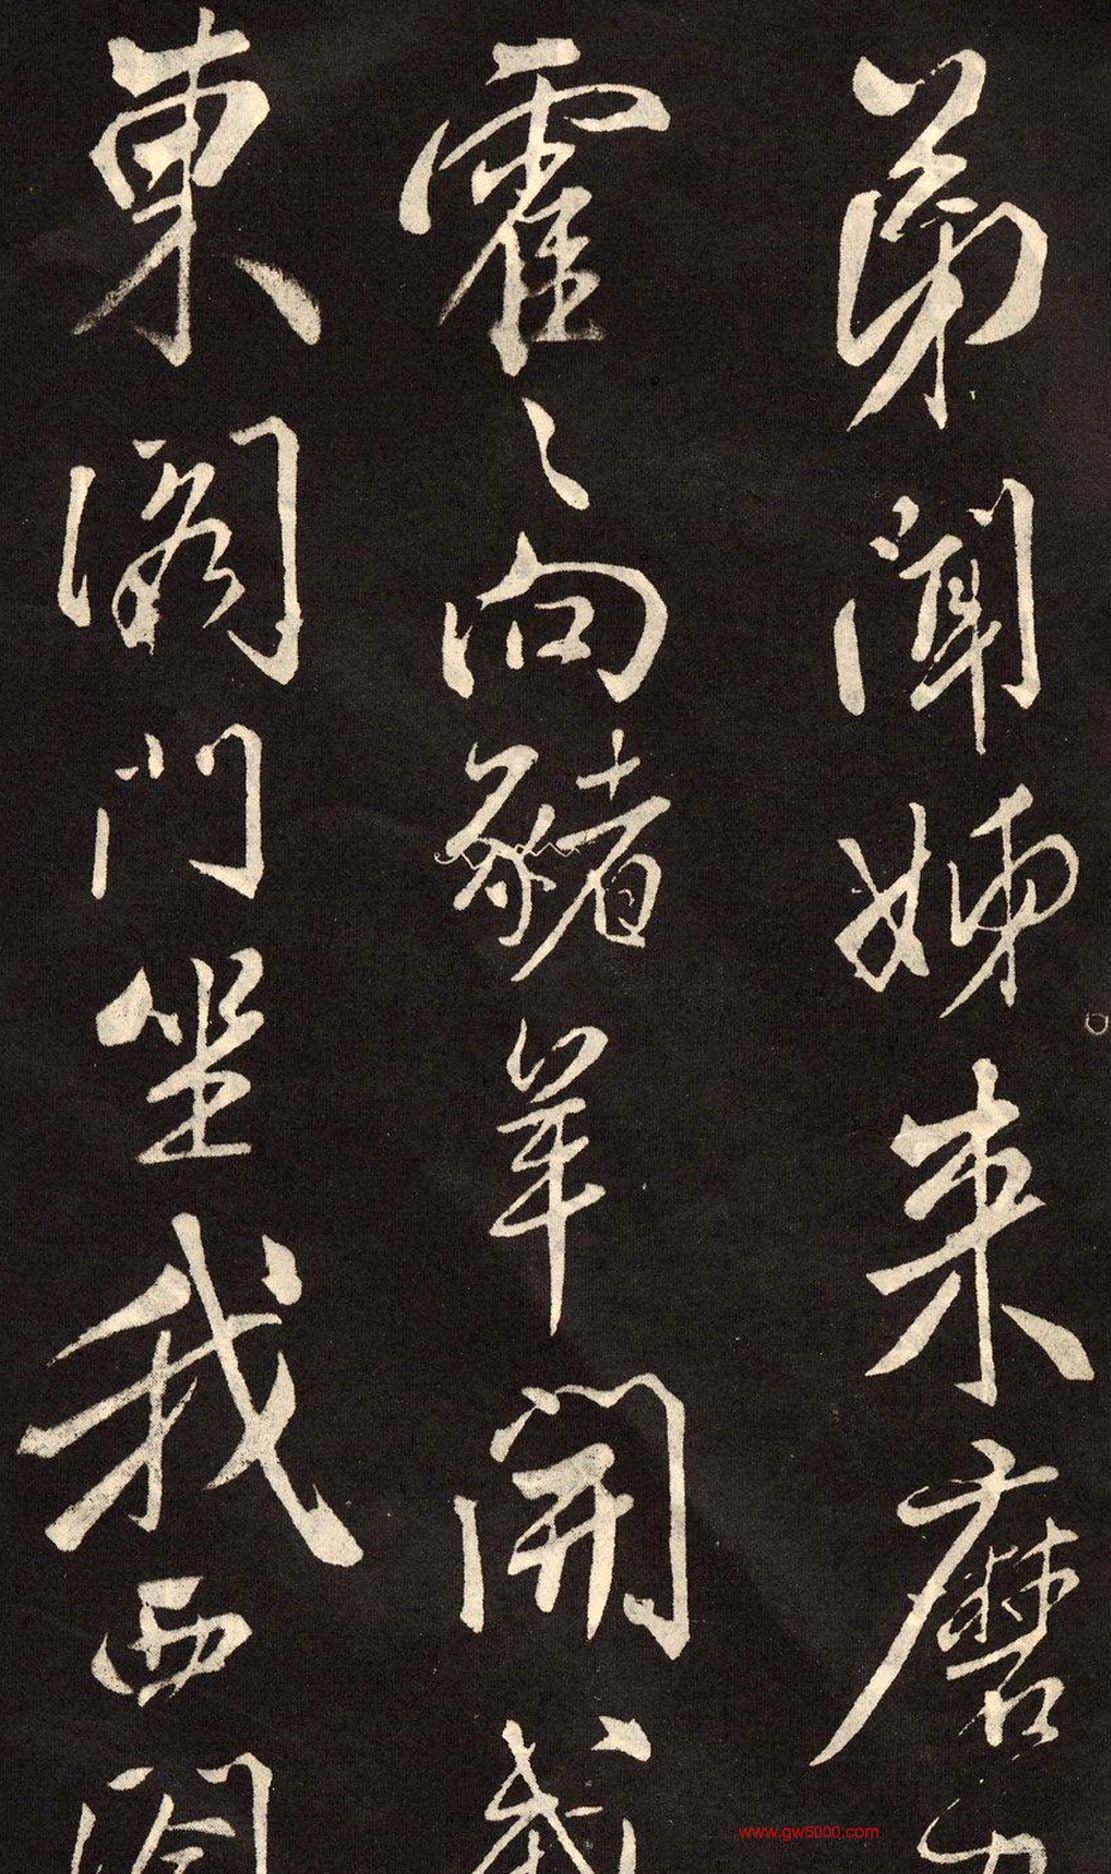 弟聞姊来磨
霍〻向豬羊開我
東閣門坐我西
www.gw5000.com